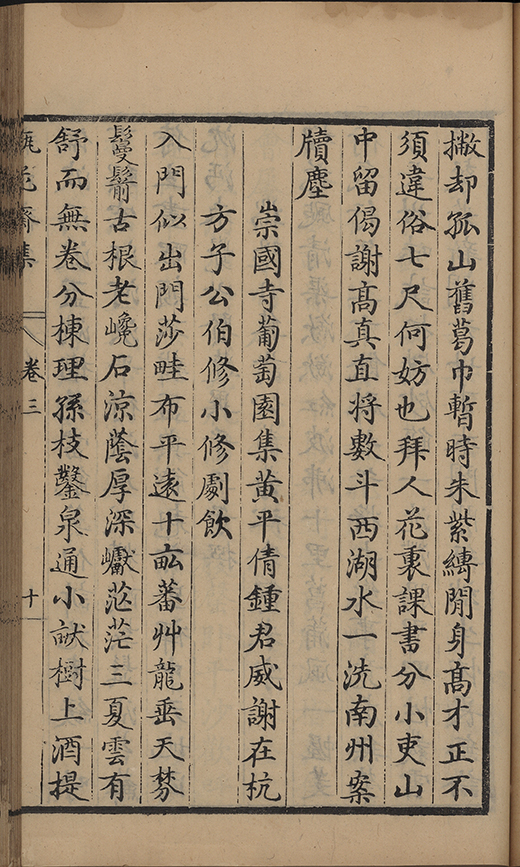 撇却孤山舊葛巾暫時朱紫縛閒身高才正不
須違俗七尺何妨也拜人花裏課書分小吏山
中留偈謝高真直將數斗西湖水一洗南州案
牘塵
崇國寺葡萄園集黃平倩鍾君威謝在杭
方子公伯修小修劇飲
入門似出門莎畦布平遠十畝蕃艸龍垂天棼
鬘鬋古根老巉石涼蔭厚深巘茫茫三夏雲有
舒而無卷分棟理孫枝鑿泉通小畎樹上酒提
瓶花齋集
卷三
十